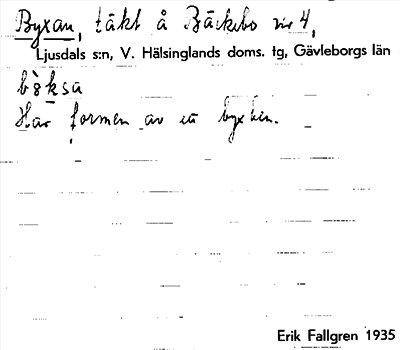 Byxan, täkt å Bäckebo nr 4,
Ljusdals s:n, V. Hälsinglands doms. tg, Gävleborgs län
Har formen av en byxben.
Erik Fallgren 1935